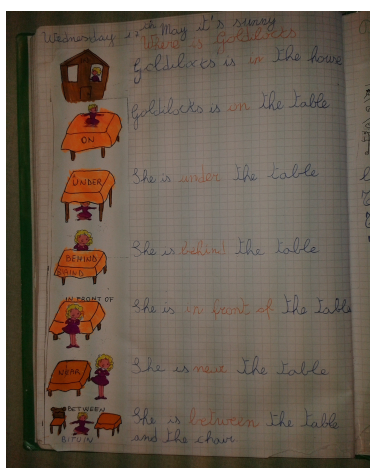 Wednesday 12th May it's sunny
Where is Goldilocks
Goldilocks is in the house
Goldilocks is on the table
ON
She is under the table
UNDER
She is behind the table
BEHIND
BAIND
IN FRONT OF
She is in front of the table
She is near the table
NEAR
BETWEEN
She is between the table
and the chair
BITUIN